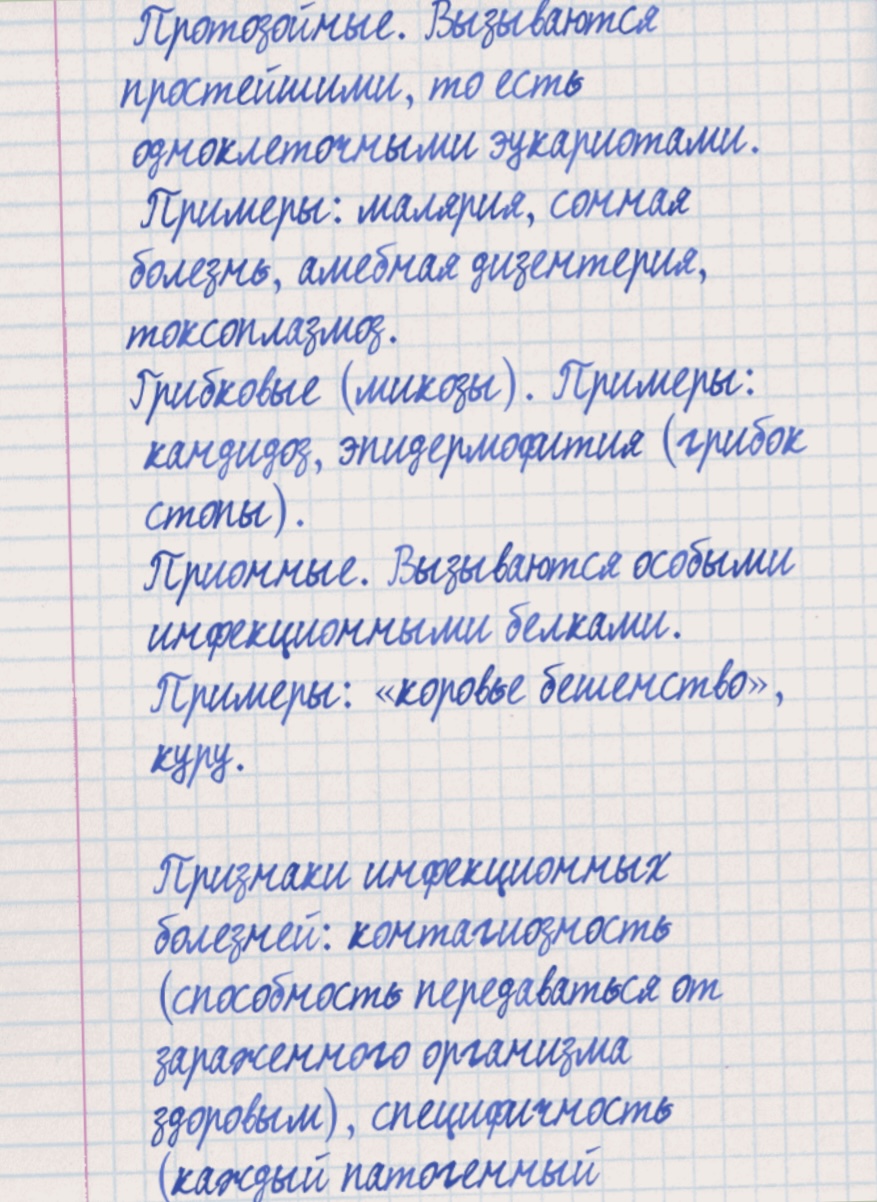 Протозойные. Вызываются
простейшими, то есть
одноклеточными эукариотами.
Примеры: малярия, сонная
болезнь, амебная дизентерия,
токсоплазмоз.
Грибковые (микозы). Примеры:
кандидоз, эпидермофития (грибок
стопы).
Прионные. Вызываются особыми
инфекционными белками.
Примеры: «коровье бешенство»,
куру.
Признаки инфекционных
болезней: контагиозность
(способность передаваться от
зараженного организма
здоровым), специфичность
(каждый патогенный